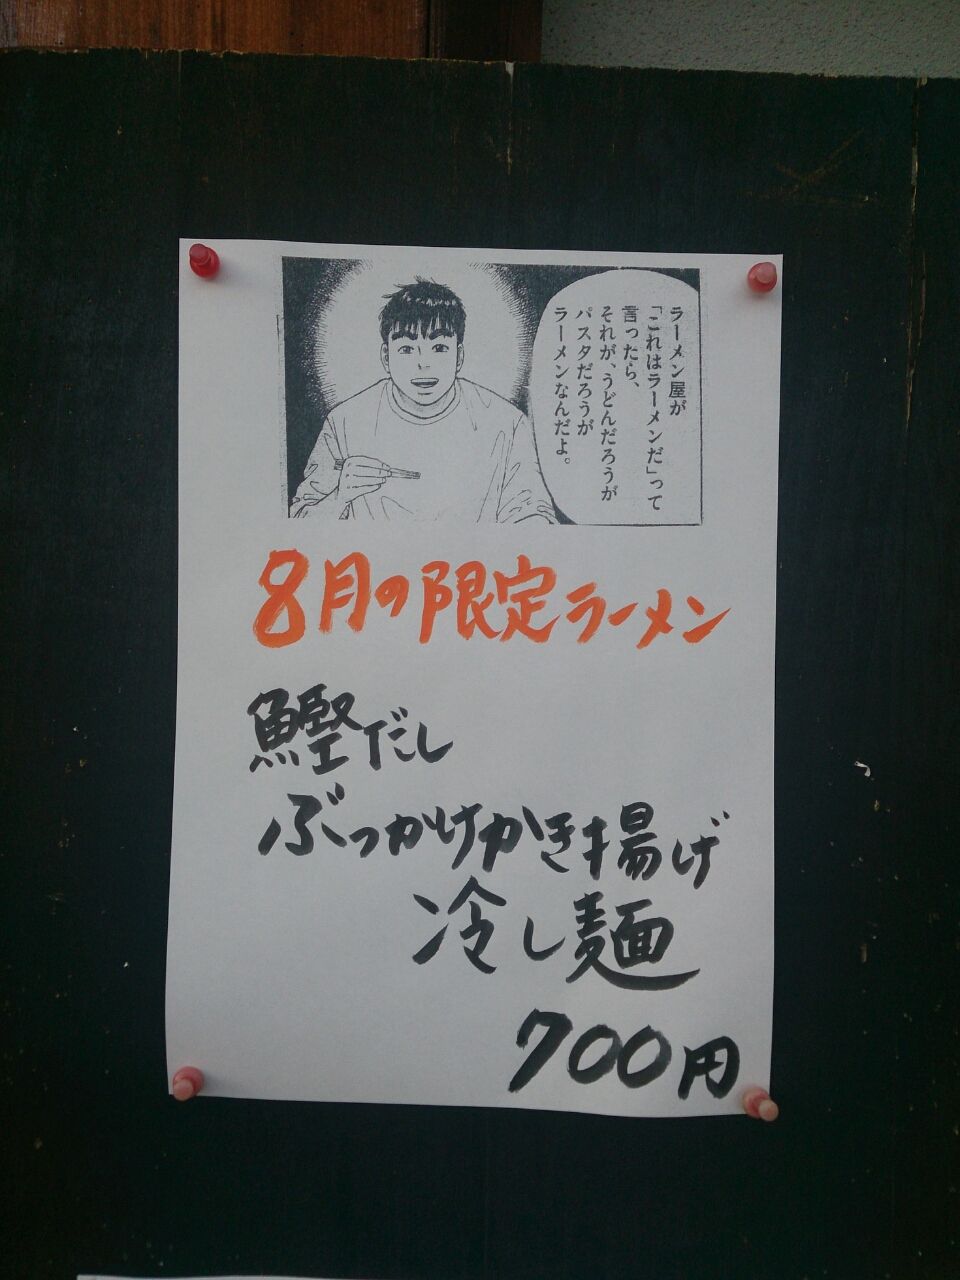 ラーメン屋が
「これはラーメンだ」って
言ったら、
それが、うどんだろうが
パスタだろうが
ラーメンなんだよ。
8月の限定ラーメン
鰹だし
ぶっかけかき揚げ
冷し麺
700円